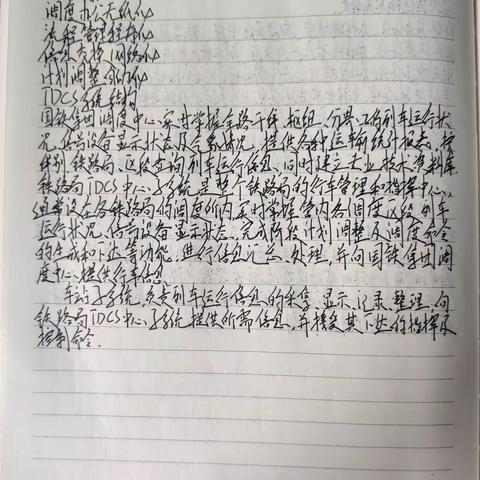 调度办公无纸化
流程管理程序化
信息交换网络化
计划调整自动化
TDCS系统结构
国铁集团调度中心实时掌握全路干线、枢纽、分界口的列车运行状
况、信号设备显示状态及气象情况，提供各种运输统计报表，按
铁路局、区段查询列车运行信息，同时建立专业技术资料库
铁路局TDCS中心子系统是整个铁路局的行车管理和指挥中心，
通常设在各铁路局的调度所内实时掌握管内各调度区段列车
运行状况、信号设备显示状态，完成阶段计划调整及调度命令
的生成和下达等功能，进行信息汇总、处理，并向国铁集团调
度中心提供行车信息
车站子系统，负责列车运行信息的采集、显示、记录、整理、向
铁路局TDCS中心子系统提供所需信息，并接受其下达的指挥及
控制命令.